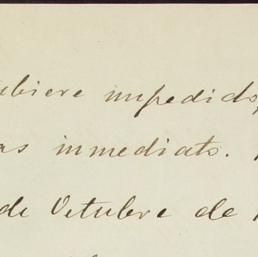 ubiere impedido,
as inmediato.
de Octubre de